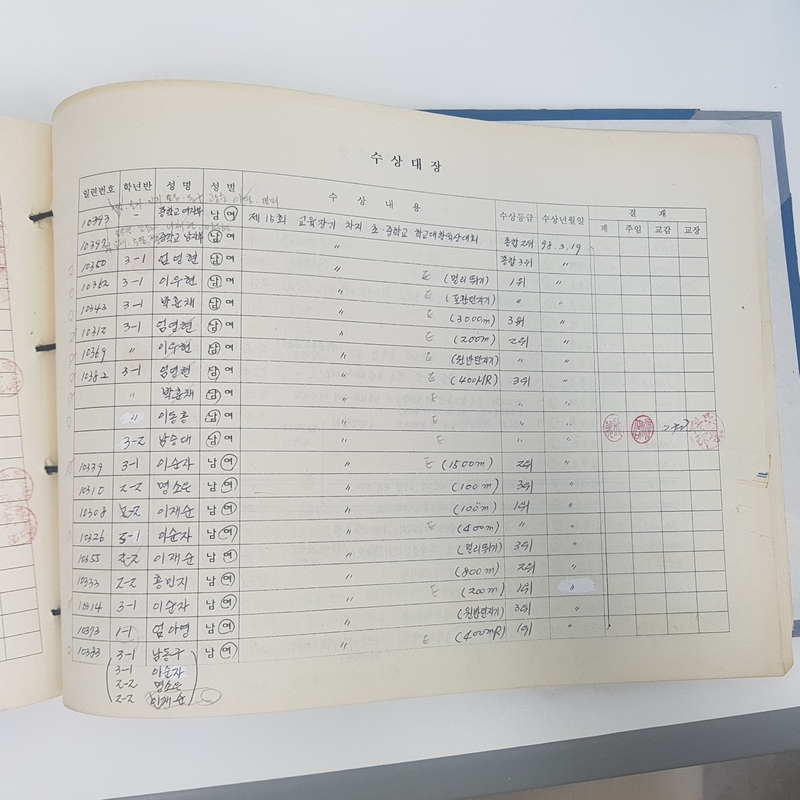 수상대장
일련번호 학년반 성명 성별 수상내용 수상등급 수상년월일 결재
계 주임 교감 교장
10393 " 중학교 여자부 남 여 제15회 교육장기 차지 초·중학교 학교대항육상대회 종합2위 98.3.19
중학교 남자부 남 여 " 종합3위 "
10350 3-1 엄영현 남 여 " (멀리뛰기) 1위 "
10362 3-1 이우현 남 여 " (포환던지기) " "
10343 3-1 박훈채 남 여 " (3000m) 3위 "
10312 3-1 엄영현 남 여 " (200m) 2위 "
10369 " 이우현 남 여 " (원반던지기) " "
10382 3-1 엄영현 남 여 " (400MR) 3위 "
" 박훈채 남 여 " " "
" 이동홍 남 여 " " "
3-2 남승대 남 여 " " "
10339 3-1 이순자 남 여 " (1500m) 2위 "
10310 2-2 명소은 남 여 " (100m) 3위 "
10308 2-2 이재순 남 여 " (100m) 1위 "
10326 3-1 이순자 남 여 " (400m) " "
10355 2-2 이재순 남 여 " (멀리뛰기) 3위 "
10333 2-2 홍민지 남 여 " (800m) 2위 "
10314 3-1 이순자 남 여 " (200m) 1위 "
10373 1-1 엄아영 남 여 " (원반던지기) 3위 "
10383 3-1 남동구 남 여 " (400mR) 1위 "
3-1 이순자
2-2 명소은
2-2 이재순